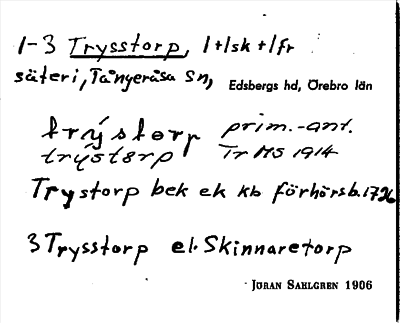 1-3 Trysstorp, 1+1sk+1fr
säteri, Tångeråsa sn, Edsbergs hd, Örebro län
trýstorp prim.-ant.
trýstørp Tr MS 1914
Trystorp bek ek kb förhörsb. 1726
3 Trysstorp el. Skinnaretorp
JÖRAN SAHLGREN 1906